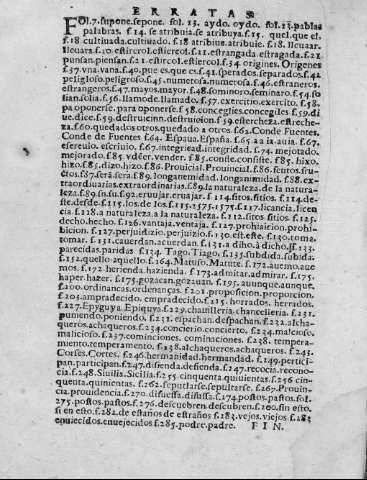 ERRATAS
FOl.7. supone. sepone. fol. 13. aydo. oydo. fol. 23. pablas
palabras. f. 14. se atribuia. se atribuya. f. 15. quel. que el.
f. 18. cultiuada. cultiuado. f. 18 atribiue. atribuie. f. 18. lleuaar.
lleuara. f. 20. estircol. estiercol. f. 21. estrangada. estragada. f. 21
punsan. piensan. f. 21 estircol. estiercol. f. 34 origines. Origenes
f. 37. vna. vana. f. 40. pue es. que es. f. 41. sperados. separados. f. 42
peligloso. peligroso. f. 45. numetosa. numerosa. f. 46. estraneros.
estrangeros. f. 47. mayos. mayor. f. 48. sominoro. seminaro. f. 54. so
lian. solia. f. 56. llamode. llamado. f. 57. exercitio. exercito. f. 58.
pa oponerse. para oponerse. f. 58. concegiles. concegiles f. 59. di
que. dice. f. 59. destruicinn. destruicion. f. 59. estercheza. estreche
za. f. 60. quedados otros. quedado a otros f. 62. Conde Fuentes.
Conde de Fuentes f. 64. Espaua. España. f. 65. aa ia. auia. f. 67.
esereuio. escriuio. f. 67. intergriead. integridad. f. 74. mejotado.
mejorado. f. 85. vder. vender. f. 85. conste. consiste. f. 85. hixo.
hizo. f. 85. dixo. hizo. f. 86. Prouicial. Prouincial. f. 86. feutos. fru
ctos. f. 87. será será. f. 89. longanemidad. longanimidad. f. 88. ex
traordiuarias. extraordinarias. f. 89. la naturaleza. de la natura
leza. f. 89. su. su. f. 92. eruujar. eruajar. f. 114. sitos. sitios. f. 114. de
ste. desde. f. 115. los. de los. f. 115. 1575. 1575. f. 117. licancia. licen
cia f. 118. a naturaleza. a la naturaleza. f. 112. sitos. sitios. f. 125.
decho. hecho. f. 126. vantaja. ventaja. f. 127. prohiaicion. prohi
bicion. f. 127. perjuidizio. perjuizio. f. 130. est. este. f. 130. toma.
tomar. f. 131. cauerdan. acuerdan. f. 131. a diho. à dicho. f. 133.
parecidas. paridas f. 134. Tago. Tiago. f. 135. subdida. subida.
f. 152. quello. aquello. f. 164. Matufo. Matute. f. 172. auemo. aue
mos. f. 172. herienda. hazienda. f. 173. admitar. admirar. f. 175.
haper. hazer. f. 175. gozacan. gozauan. f. 195. auunque. aunque.
f. 200. ordinances. ordenanças. f. 201. propoficion. proporcion.
f. 203. ampredecido. empradecido. f. 215. horrados. herrados.
f. 227. Epyguya. Epiquya. f. 229. chanilleria. chancelleria. f. 231.
puniendo. poniendo. f. 231. espachan. despachan. f. 232. alcha
queros. achaqueros. f. 234. concierio. concierto. f. 234. malcioso.
malicioso. f. 237. cominciones. cominaciones f. 238. tempera
miento. temperamento. f. 238. alchaqueros. achaqueros. f. 245.
Corses. Cortes. f. 246. hermanidad. hermandad. f. 149. pertici-
pan. participan. f. 247. disienda. defienda. f. 247. recocia. recono-
cia. f. 248. Siuilis. Sicilia. f. 255. cinquenta. quiuientas. f. 256 cin
quenta. quinientas. f. 262. septlarse. sepultarse. f. 267. Prouin-
cia. prouidencia. f. 270. difussa. difussa. f. 174. postos. pastos. fol.
275. postos. pastos. f. 276. descuebren. descubren. f. 200. sin esto.
si en esto. f. 282. de estaños de estraños f. 183. vejos. viejos f. 283
epuiecidos. enuejecidos. f. 285. podre. padre. FIN.